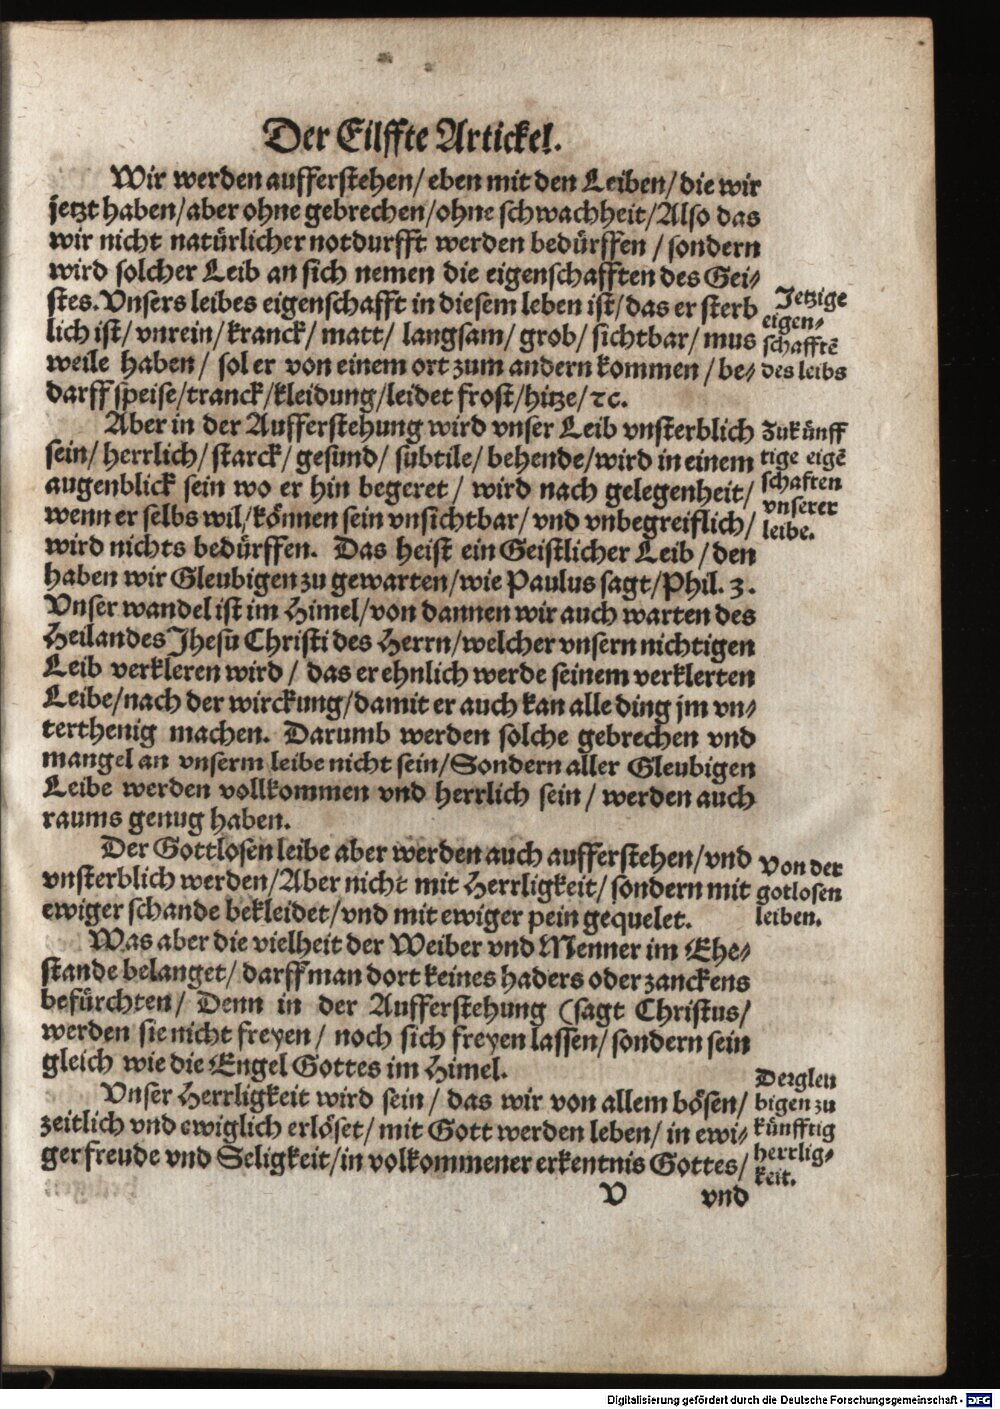 Der Eilffte Artickel.
Wir werden aufferstehen/ eben mit den Leiben/ die wir
jetzt haben/ aber ohne gebrechen/ ohne schwachheit/ Also das
wir nicht natürlicher notdurfft werden bedürffen / sondern
wird solcher Leib an sich nemen die eigenschafften des Gei-
stes. Vnsers leibes eigenschafft in diesem leben ist/ das er sterb
lich ist/ vnrein/ kranck/ matt/ langsam/ grob/ sichtbar/ mus
weile haben/ sol er von einem ort zum andern kommen/ be-
darff speise/ tranck/ kleidung/ leidet frost/ hitze/ ꝛc.
Jetzige
eigen-
schafftē
des leibs
Aber in der Aufferstehung wird vnser Leib vnsterblich
sein/ herrlich/ starck/ gesund/ subtile/ behende/ wird in einem
augenblick sein wo er hin begeret/ wird nach gelegenheit/
wenn er selbs wil/ können sein vnsichtbar/ vnd vnbegreiflich/
wird nichts bedürffen. Das heist ein Geistlicher Leib/ den
haben wir Gleubigen zu gewarten/ wie Paulus sagt/ Phil. 3.
Vnser wandel ist im Himel/ von dannen wir auch warten des
Heilandes Jhesu Christi des Herrn/ welcher vnsern nichtigen
Leib verkleren wird/ das er ehnlich werde seinem verklerten
Leibe/ nach der wirckung/ damit er auch kan alle ding jm vn-
terthenig machen. Darumb werden solche gebrechen vnd
mangel an vnserm leibe nicht sein/ Sondern aller Gleubigen
Leibe werden vollkommen vnd herrlich sein/ werden auch
raums genug haben.
Zukünff
tige eigē
schaften
vnserer
leibe.
Der Gottlosen leibe aber werden auch aufferstehen/ vnd
vnsterblich werden/ Aber nicht mit Herrligkeit/ sondern mit
ewiger schande bekleidet/ vnd mit ewiger pein gequelet.
Von der
gotlosen
leiben.
Was aber die vielheit der Weiber vnd Menner im Ehe-
stande belanget/ darff man dort keines haders oder zanckens
befürchten/ Denn in der Aufferstehung (sagt Christus/
werden sie nicht freyen/ noch sich freyen lassen/ sondern sein
gleich wie die Engel Gottes im Himel.
Vnser Herrligkeit wird sein/ das wir von allem bösen/
zeitlich vnd ewiglich erlöset/ mit Gott werden leben/ in ewi-
ger freude vnd Seligkeit/ in volkommener erkentnis Gottes/
Der gleu
bigen zu
künfftig
herrlig-
keit.
V vnd
Digitalisierung gefördert durch die Deutsche Forschungsgemeinschaft - DFG